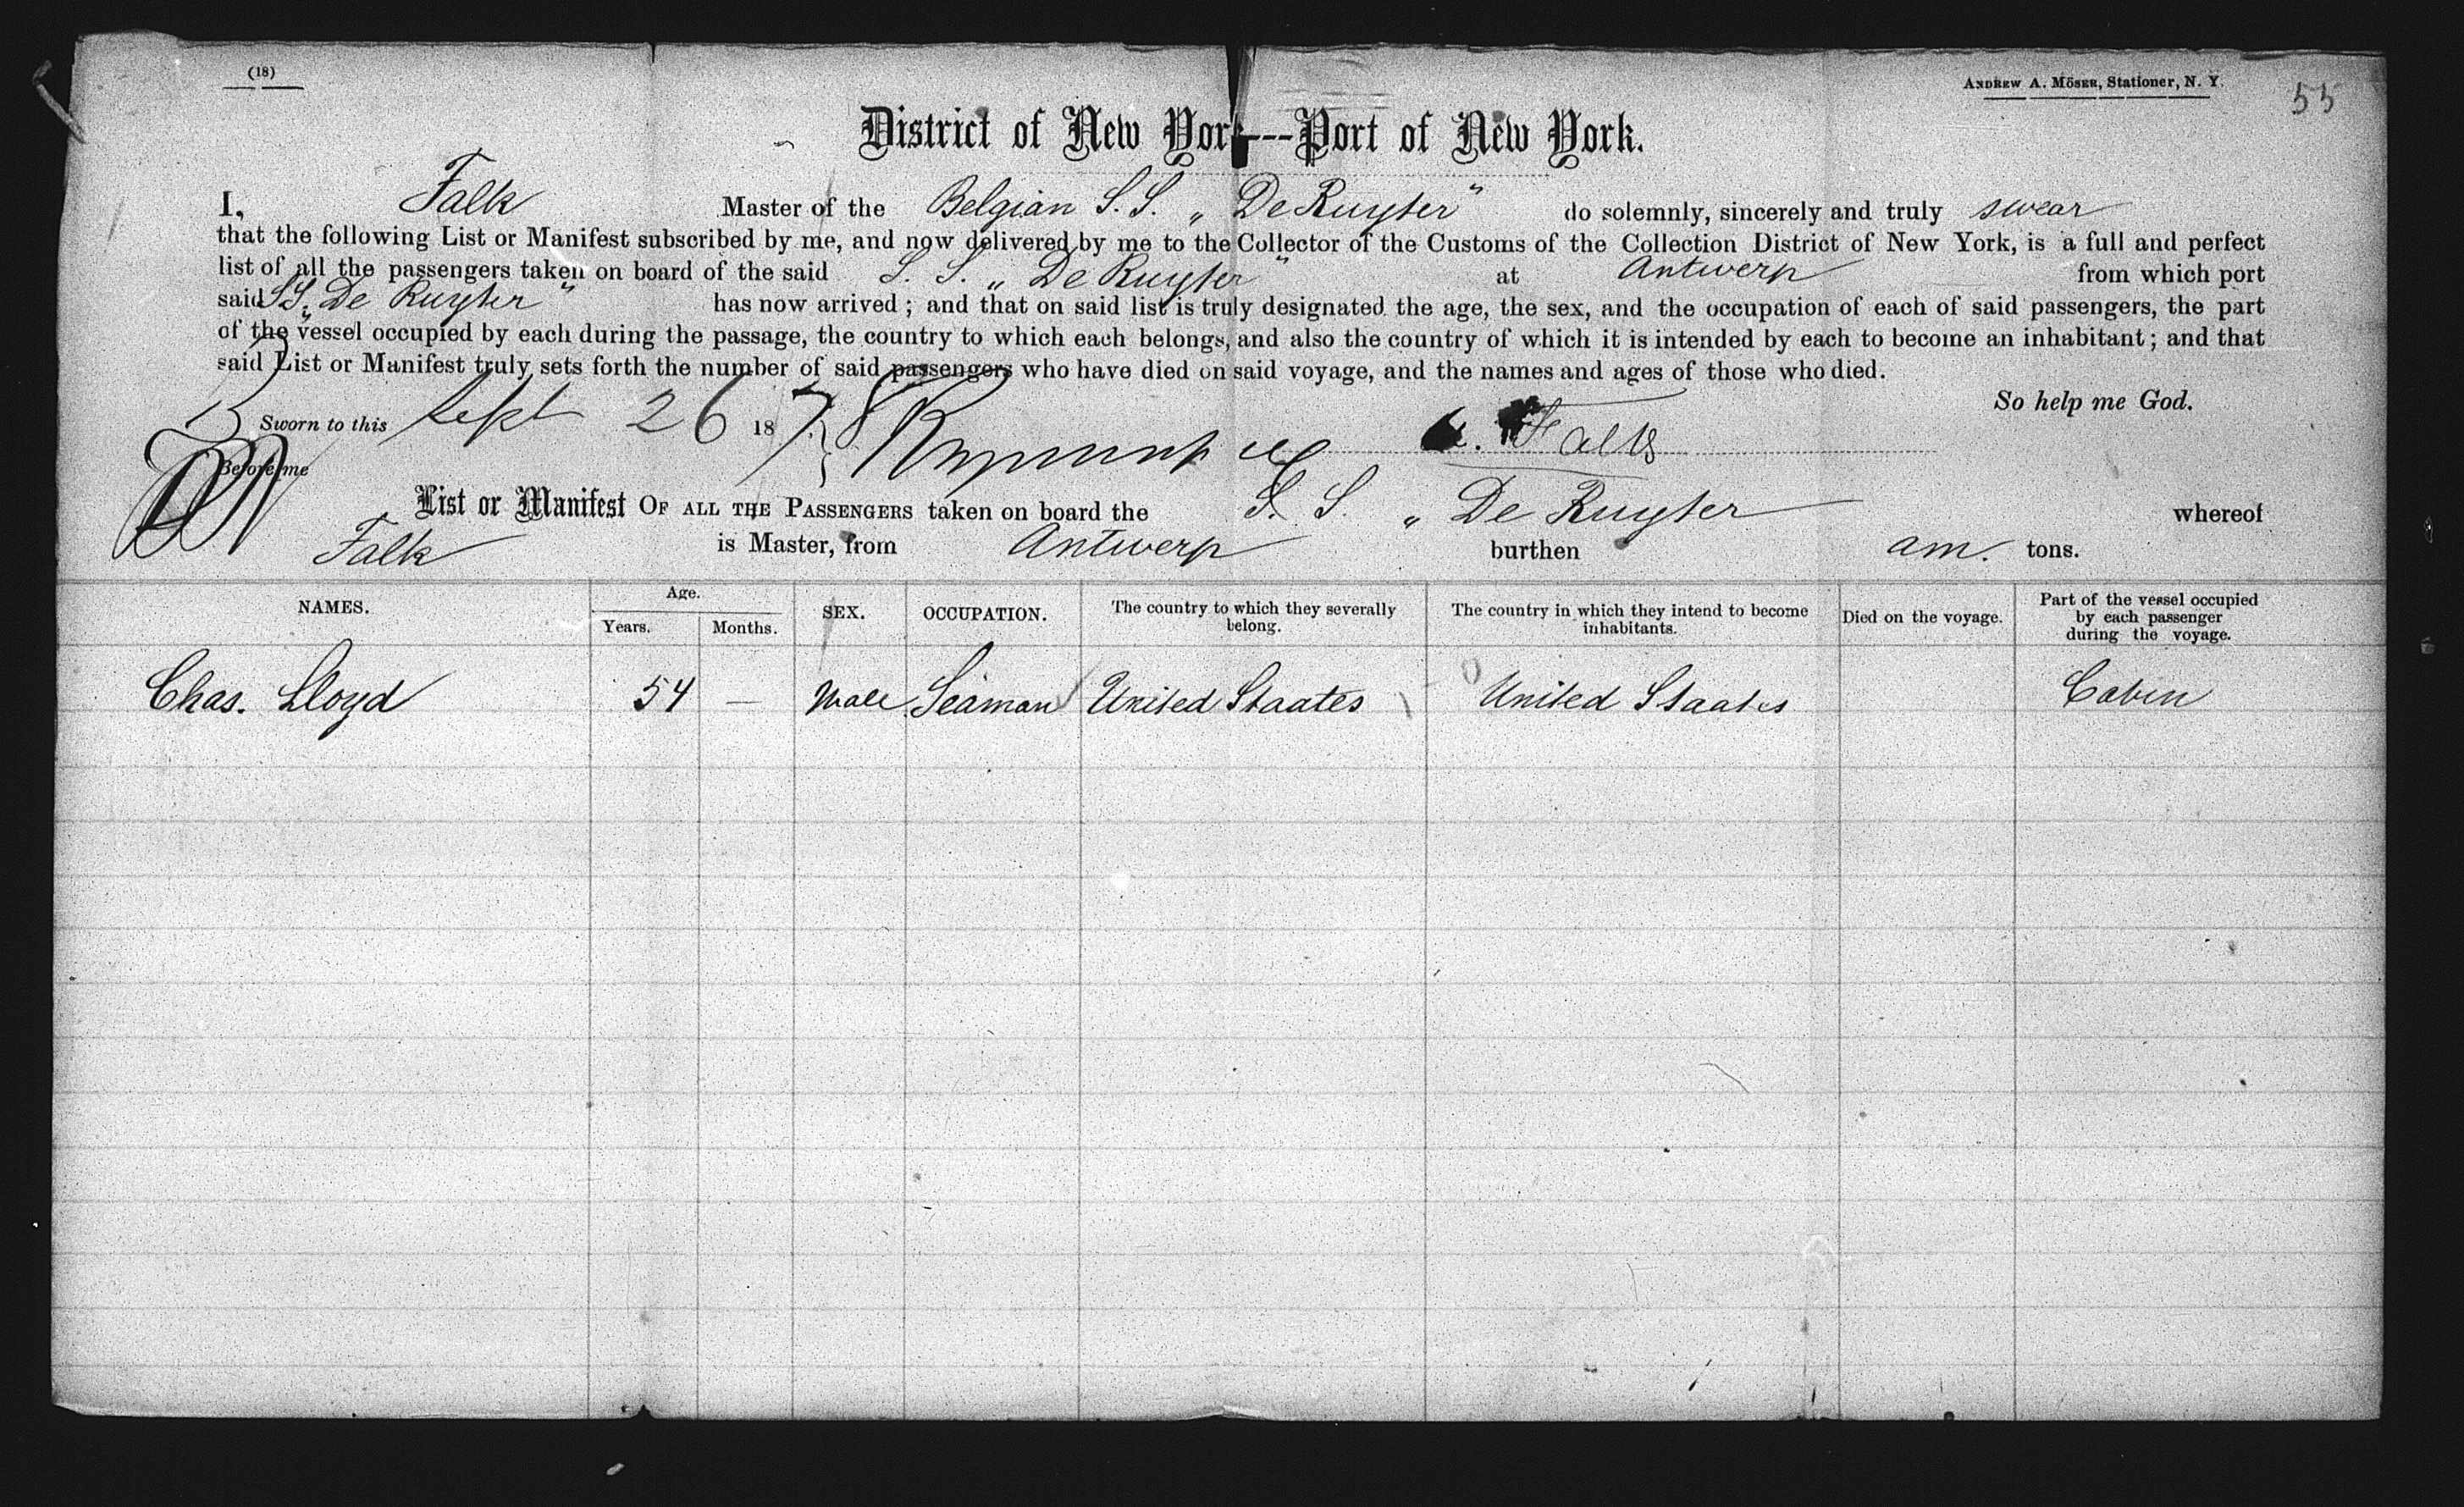 (18)
ANDREW A. MÖSER, Stationer, N. Y.
55
District of New York---Port of New York.
I, Falk Master of the Belgian S. S. „De Ruyter" do solemnly, sincerely and truly swear
that the following List or Manifest subscribed by me, and now delivered by me to the Collector of the Customs of the Collection District of New York, is a full and perfect
list of all the passengers taken on board of the said S. S. „De Ruyter" at Antwerp from which port
said S.S. „De Ruyter" has now arrived; and that on said list is truly designated the age, the sex, and the occupation of each of said passengers, the part
of the vessel occupied by each during the passage, the country to which each belongs, and also the country of which it is intended by each to become an inhabitant; and that
said List or Manifest truly sets forth the number of said passengers who have died on said voyage, and the names and ages of those who died.
So help me God.
Sworn to this Sept 26 1878 Falk
Before me
List or Manifest OF ALL THE PASSENGERS taken on board the S. S. „De Ruyter whereof
Falk is Master, from Antwerp burthen am. tons.
NAMES. Age. Years. Months. SEX. OCCUPATION. The country to which they severally belong. The country in which they intend to become inhabitants. Died on the voyage. Part of the vessel occupied by each passenger during the voyage.
Chas. Lloyd 54 — Male Seaman United Staates United Staates Cabin